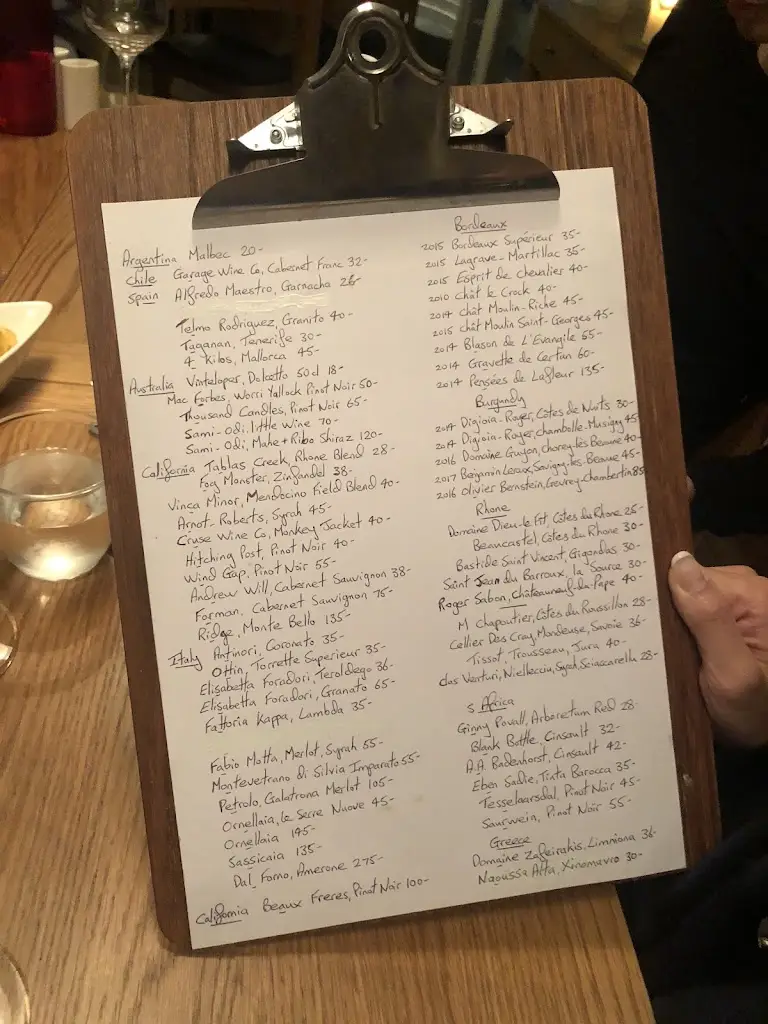 Argentina Malbec 20-
Chile Garage Wine Co, Cabernet Franc 32-
Spain Alfredo Maestro, Garnacha 26-
Telmo Rodriguez, Granito 40-
Taganan, Tenerife 30-
4 Kilos, Mallorca 45-
Australia Vinteloper, Dolcetto 50cl 18-
Mac Forbes, Worri Yallock Pinot Noir 50-
Thousand Candles, Pinot Noir 65-
Sami-Odi, little Wine 70-
Sami-Odi, Mahe + Ribo Shiraz 120-
California Tablas Creek, Rhone Blend 28-
Fog Monster, Zinfandel 38-
Vinca Minor, Mendocino Field Blend 40-
Arnot-Roberts, Syrah 45-
Cruse Wine Co, Monkey Jacket 40-
Hitching Post, Pinot Noir 40-
Wind Gap, Pinot Noir 55-
Andrew Will, Cabernet Sauvignon 38-
Forman, Cabernet Sauvignon 75-
Ridge, Monte Bello 135-
Italy Antinori, Coronato 35-
Ottin, Torrette Superieur 35-
Elisabetta Foradori, Teroldego 36-
Elisabetta Foradori, Granato 65-
Fattoria Kappa, Lambda 35-
Fabio Motta, Merlot, Syrah 55-
Montevetrano di Silvia Imparato 55-
Petrolo, Galatrona Merlot 105-
Ornellaia, Le Serre Nuove 45-
Ornellaia 145-
Sassicaia 135-
Dal Forno, Amerone 275-
California Beaux Freres, Pinot Noir 100-
Bordeaux
2015 Bordeaux Supérieur 35-
2015 Lagrave-Martillac 35-
2015 Esprit de Chevalier 40-
2010 Chât le Crock 40-
2014 Chât Moulin-Riche 45-
2015 Chât Moulin Saint-Georges 45-
2014 Blason de L'Evangile 55-
2014 Gravette de Certan 60-
2014 Pensées de Lafleur 135-
Burgundy
2014 Digioia-Royer, Côtes de Nuits 30-
2014 Digioia-Royer, Chambolle-Musigny 45-
2016 Domaine Guyon, Chorey-lès-Beaune 40-
2017 Benjamin Leroux, Savigny-lès-Beaune 45-
2016 Olivier Bernstein, Gevrey-Chambertin 85
Rhone
Domaine Dieu-le-Fit, Côtes du Rhone 25-
Beaucastel, Côtes du Rhone 30-
Bastide Saint Vincent Gigondas 30-
Saint Jean du Barroux, la Source 30-
Roger Sabon, Châteauneuf-du-Pape 40-
M Chapoutier, Côtes du Roussillon 28-
Cellier Des Cray, Mondeuse, Savoie 36-
Tissot, Trousseau, Jura 40-
clos Venturi, Niellecciu, Syrah, Sciaccarellu 28-
S Africa
Ginny Povall, Arboretum Red 28-
Blank Bottle, Cinsault 32-
A.A. Badenhorst, Cinsault 42-
Eben Sadie, Tinta Barocca 35-
Tesselaarsdal, Pinot Noir 45-
Saurwein, Pinot Noir 55-
Greece
Domaine Zafeirakis, Limniona 36-
Naoussa Alta, Xinomavro 30-